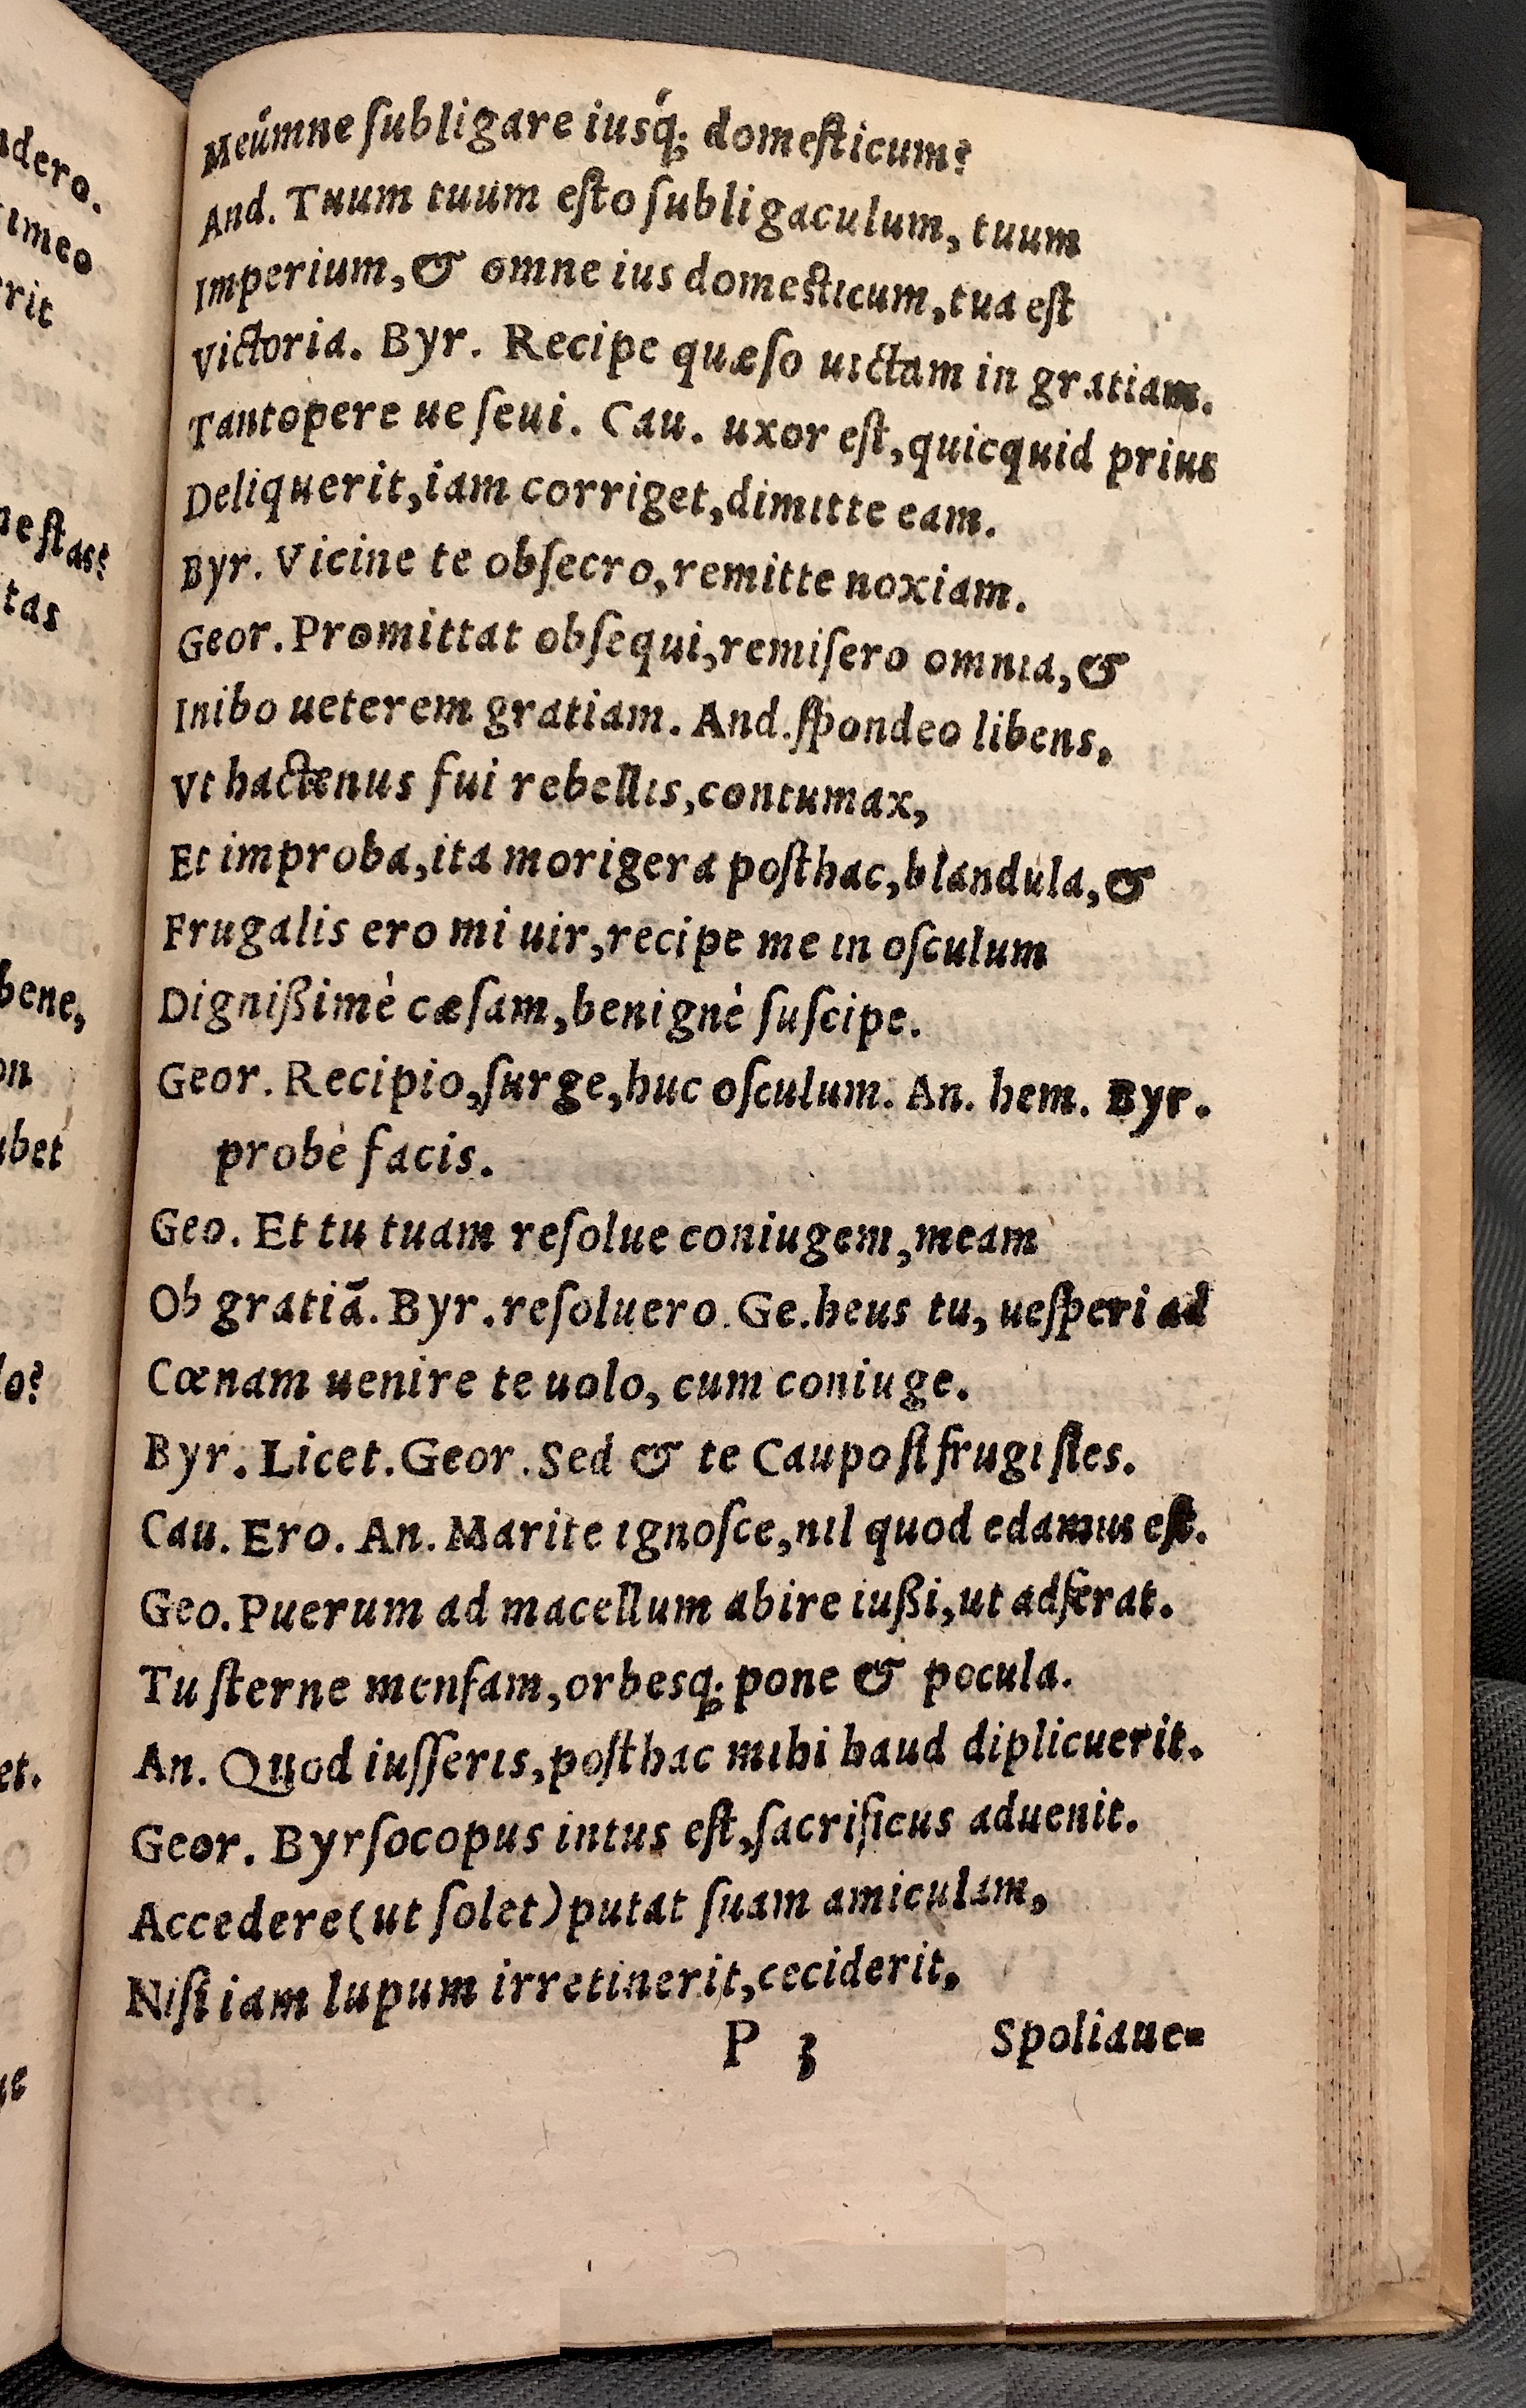 Meúmne ſubligare iusq́; domeſticum?
And. Tuum tuum eſto ſubligaculum, tuum
Imperium, & omne ius domeſticum, tua eſt
Victoria. Byr. Recipe quæſo uictam in gratiam.
Tantopere ue ſeui. Cau. uxor eſt, quicquid prius
Deliquerit, iam corriget, dimitte eam.
Byr. Vicine te obſecro, remitte noxiam.
Geor. Promittat obſequi, remiſero omnia, &
Inibo ueterem gratiam. And. ſpondeo libens,
Vt hactenus fui rebellis, contumax,
Et improba, ita morigera poſthac, blandula, &
Frugalis ero mi uir, recipe me in oſculum
Dignißimè cæſam, benignè ſuſcipe.
Geor. Recipio, ſurge, huc oſculum. An. hem. Byr.
probè facis.
Geo. Et tu tuam reſolue coniugem, meam
Ob gratiā. Byr. reſoluero. Ge. heus tu, ueſperi ad
Cœnam uenire te uolo, cum coniuge.
Byr. Licet. Geor. Sed & te Caupo ſi frugi ſies.
Cau. Ero. An. Marite ignoſce, nil quod edamus eſt.
Geo. Puerum ad macellum abire iußi, ut adferat.
Tu ſterne menſam, orbesq; pone & pocula.
An. Quod iuſſeris, poſthac mihi haud diplicuerit.
Geor. Byrſocopus intus eſt, ſacrificus aduenit.
Accedere (ut ſolet) putat ſuam amiculam,
Niſi iam lupum irretinerit, ceciderit,
P 3 Spoliaue=
ndero.
timeo
rit
neſtas?
tas
bene,
on
ubet
lo?
et.